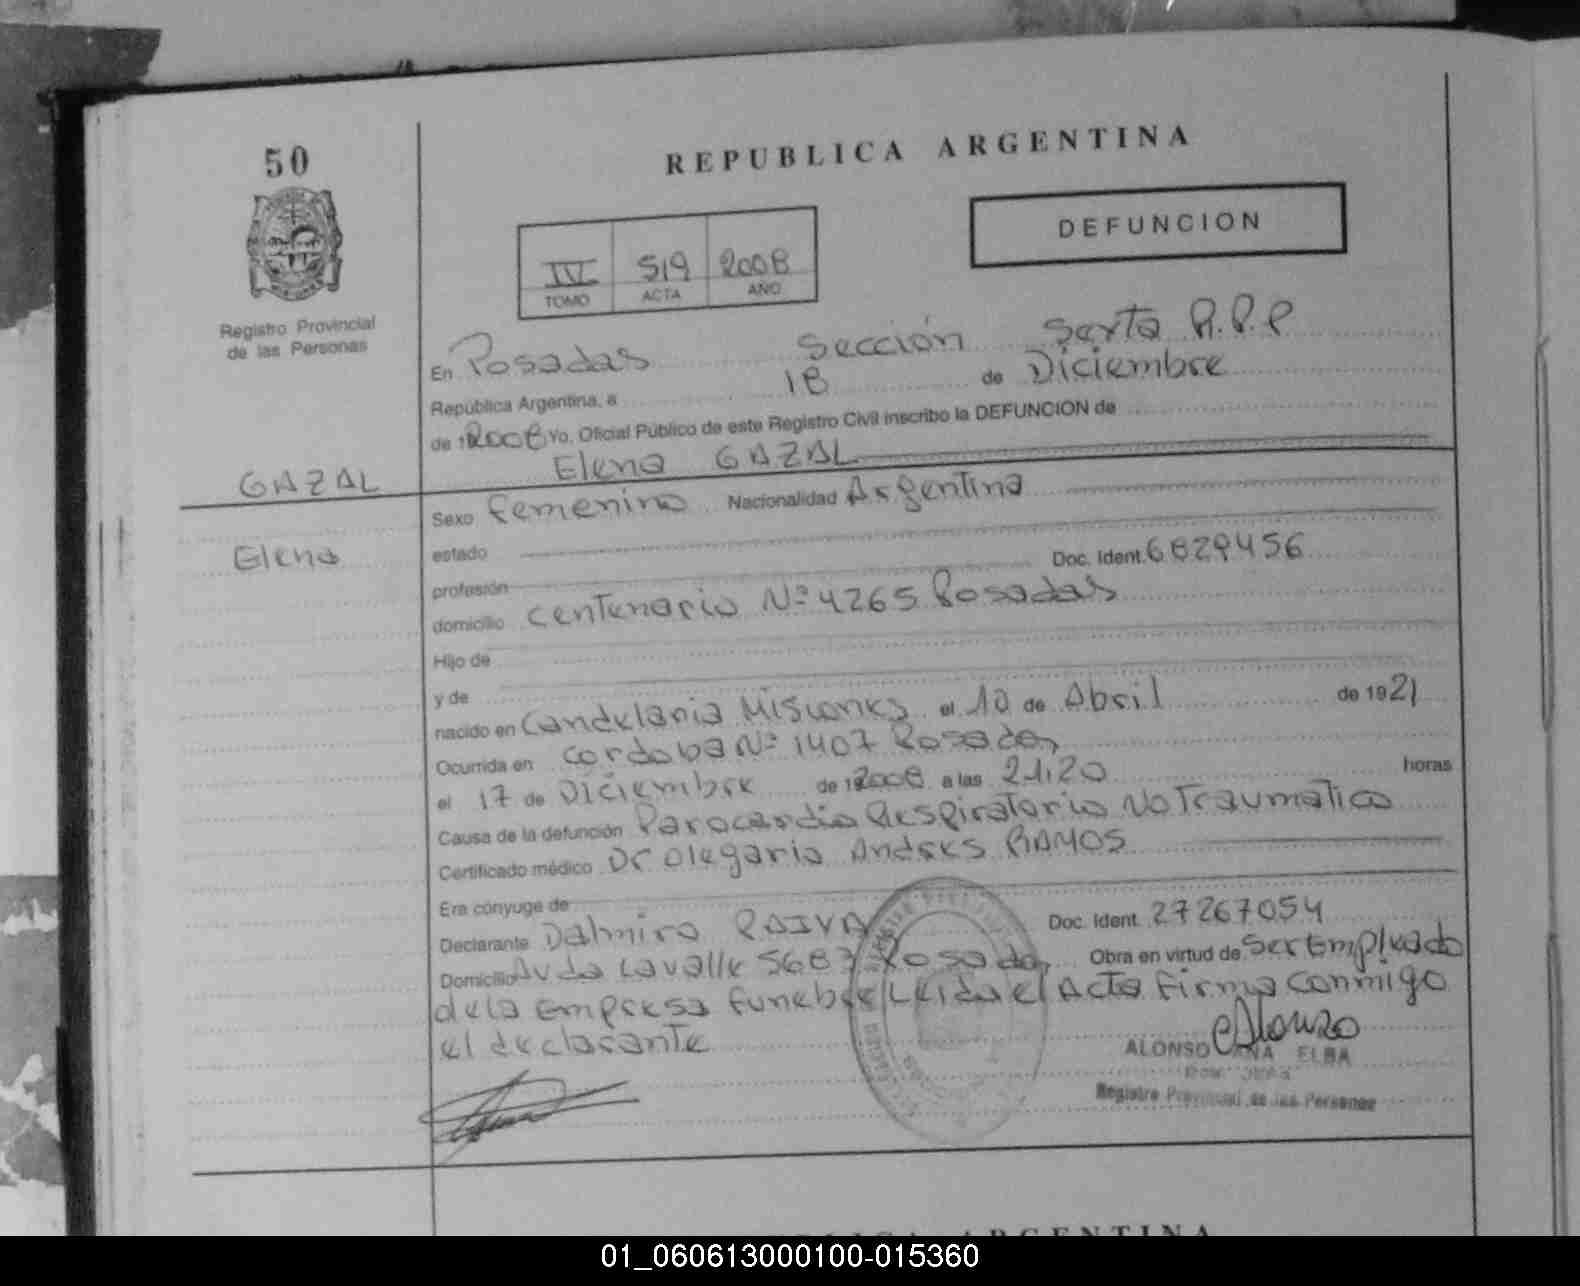 50
REPUBLICA ARGENTINA
DEFUNCION
IV 519 2008
TOMO ACTA AÑO
Registro Provincial
de las Personas
En Posadas Sección Sexta R.P.P
República Argentina, a 18 de Diciembre
de 12008 Yo, Oficial Público de este Registro Civil inscribo la DEFUNCION de
Elena GAZAL
GAZAL
Elena
Sexo Femenino Nacionalidad Argentina
estado
profesión Doc. Ident. 6829456
domicilio Centenario Nº 4265 Posadas
Hijo de
y de
nacido en Candelaria Misiones el 10 de Abril de 1921
Ocurrida en Cordoba Nº 1407 Posadas
el 17 de Diciembre de 12008 a las 21,20 horas
Causa de la defunción Parocardio Respiratorio No Traumatico
Certificado médico Dr Olegario Andres RAMOS
Era cónyuge de
Declarante Dalmiro PAIVA Doc. Ident. 27267054
Domicilio Avda Lavalle 5687 Posadas Obra en virtud de Ser Empleado
de la Empresa Funebre Leida el Acta Firma Conmigo
el declarante
ALONSO ANA ELBA
Registro Provincial de las Personas
REPUBLICA ARGENTINA
01_060613000100-015360